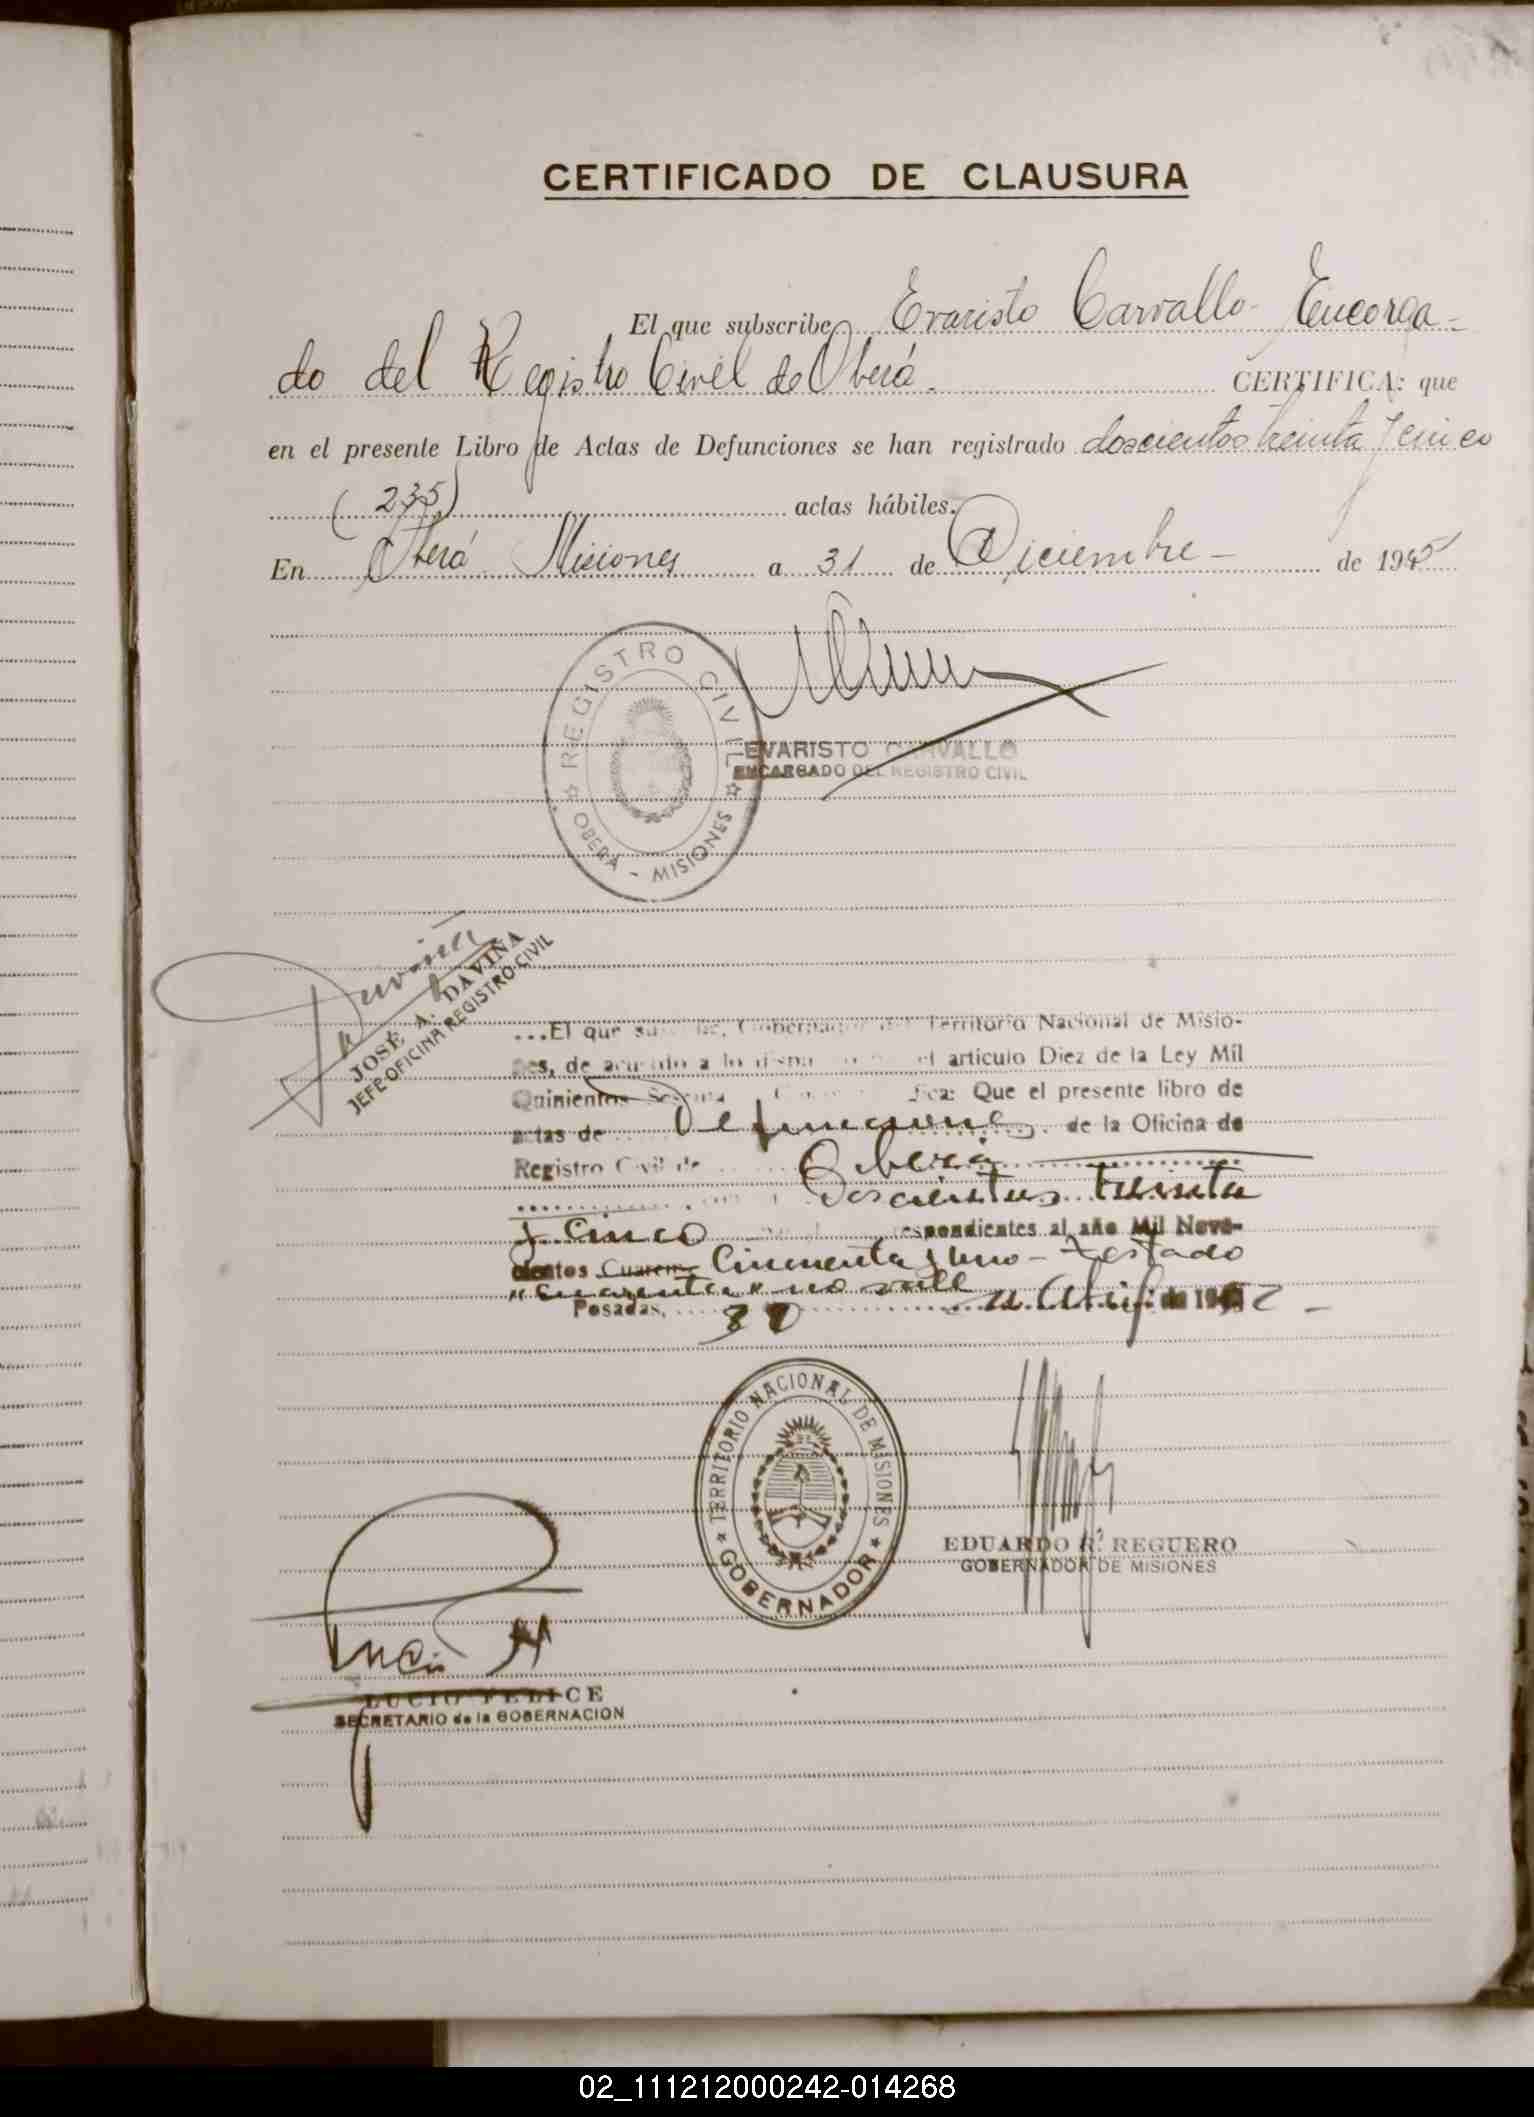 CERTIFICADO DE CLAUSURA
El que subscribe Evaristo Carvallo- Encarga-
do del Registro Civil de Oberá. CERTIFICA: que
en el presente Libro de Actas de Defunciones se han registrado doscientos treinta y cinco
(235) actas hábiles.
En Oberá Misiones a 31 de Diciembre - de 195
REGISTRO CIVIL
OBERÁ - MISIONES
EVARISTO CARVALLO
ENCARGADO DEL REGISTRO CIVIL
Daviña
JOSÉ A. DAVIÑA
JEFE OFICINA REGISTRO CIVIL
...El que Gobernador del Territorio Nacional de Misio-
nes, de acuerdo a lo el artículo Diez de la Ley Mil
Quinientos Que el presente libro de
actas de Defunciones de la Oficina de
Registro Civil de Oberá
Doscientos treinta
y cinco respondientes al año Mil Nove-
cientos Cuarenta Cincuenta y uno - testado
"Cuarenta" no vale
Posadas, 30 de Abril de 1952 -
TERRITORIO NACIONAL DE MISIONES
GOBERNADOR
EDUARDO R. REGUERO
GOBERNADOR DE MISIONES
LUCIO FELICE
SECRETARIO de la GOBERNACION
02_111212000242-014268